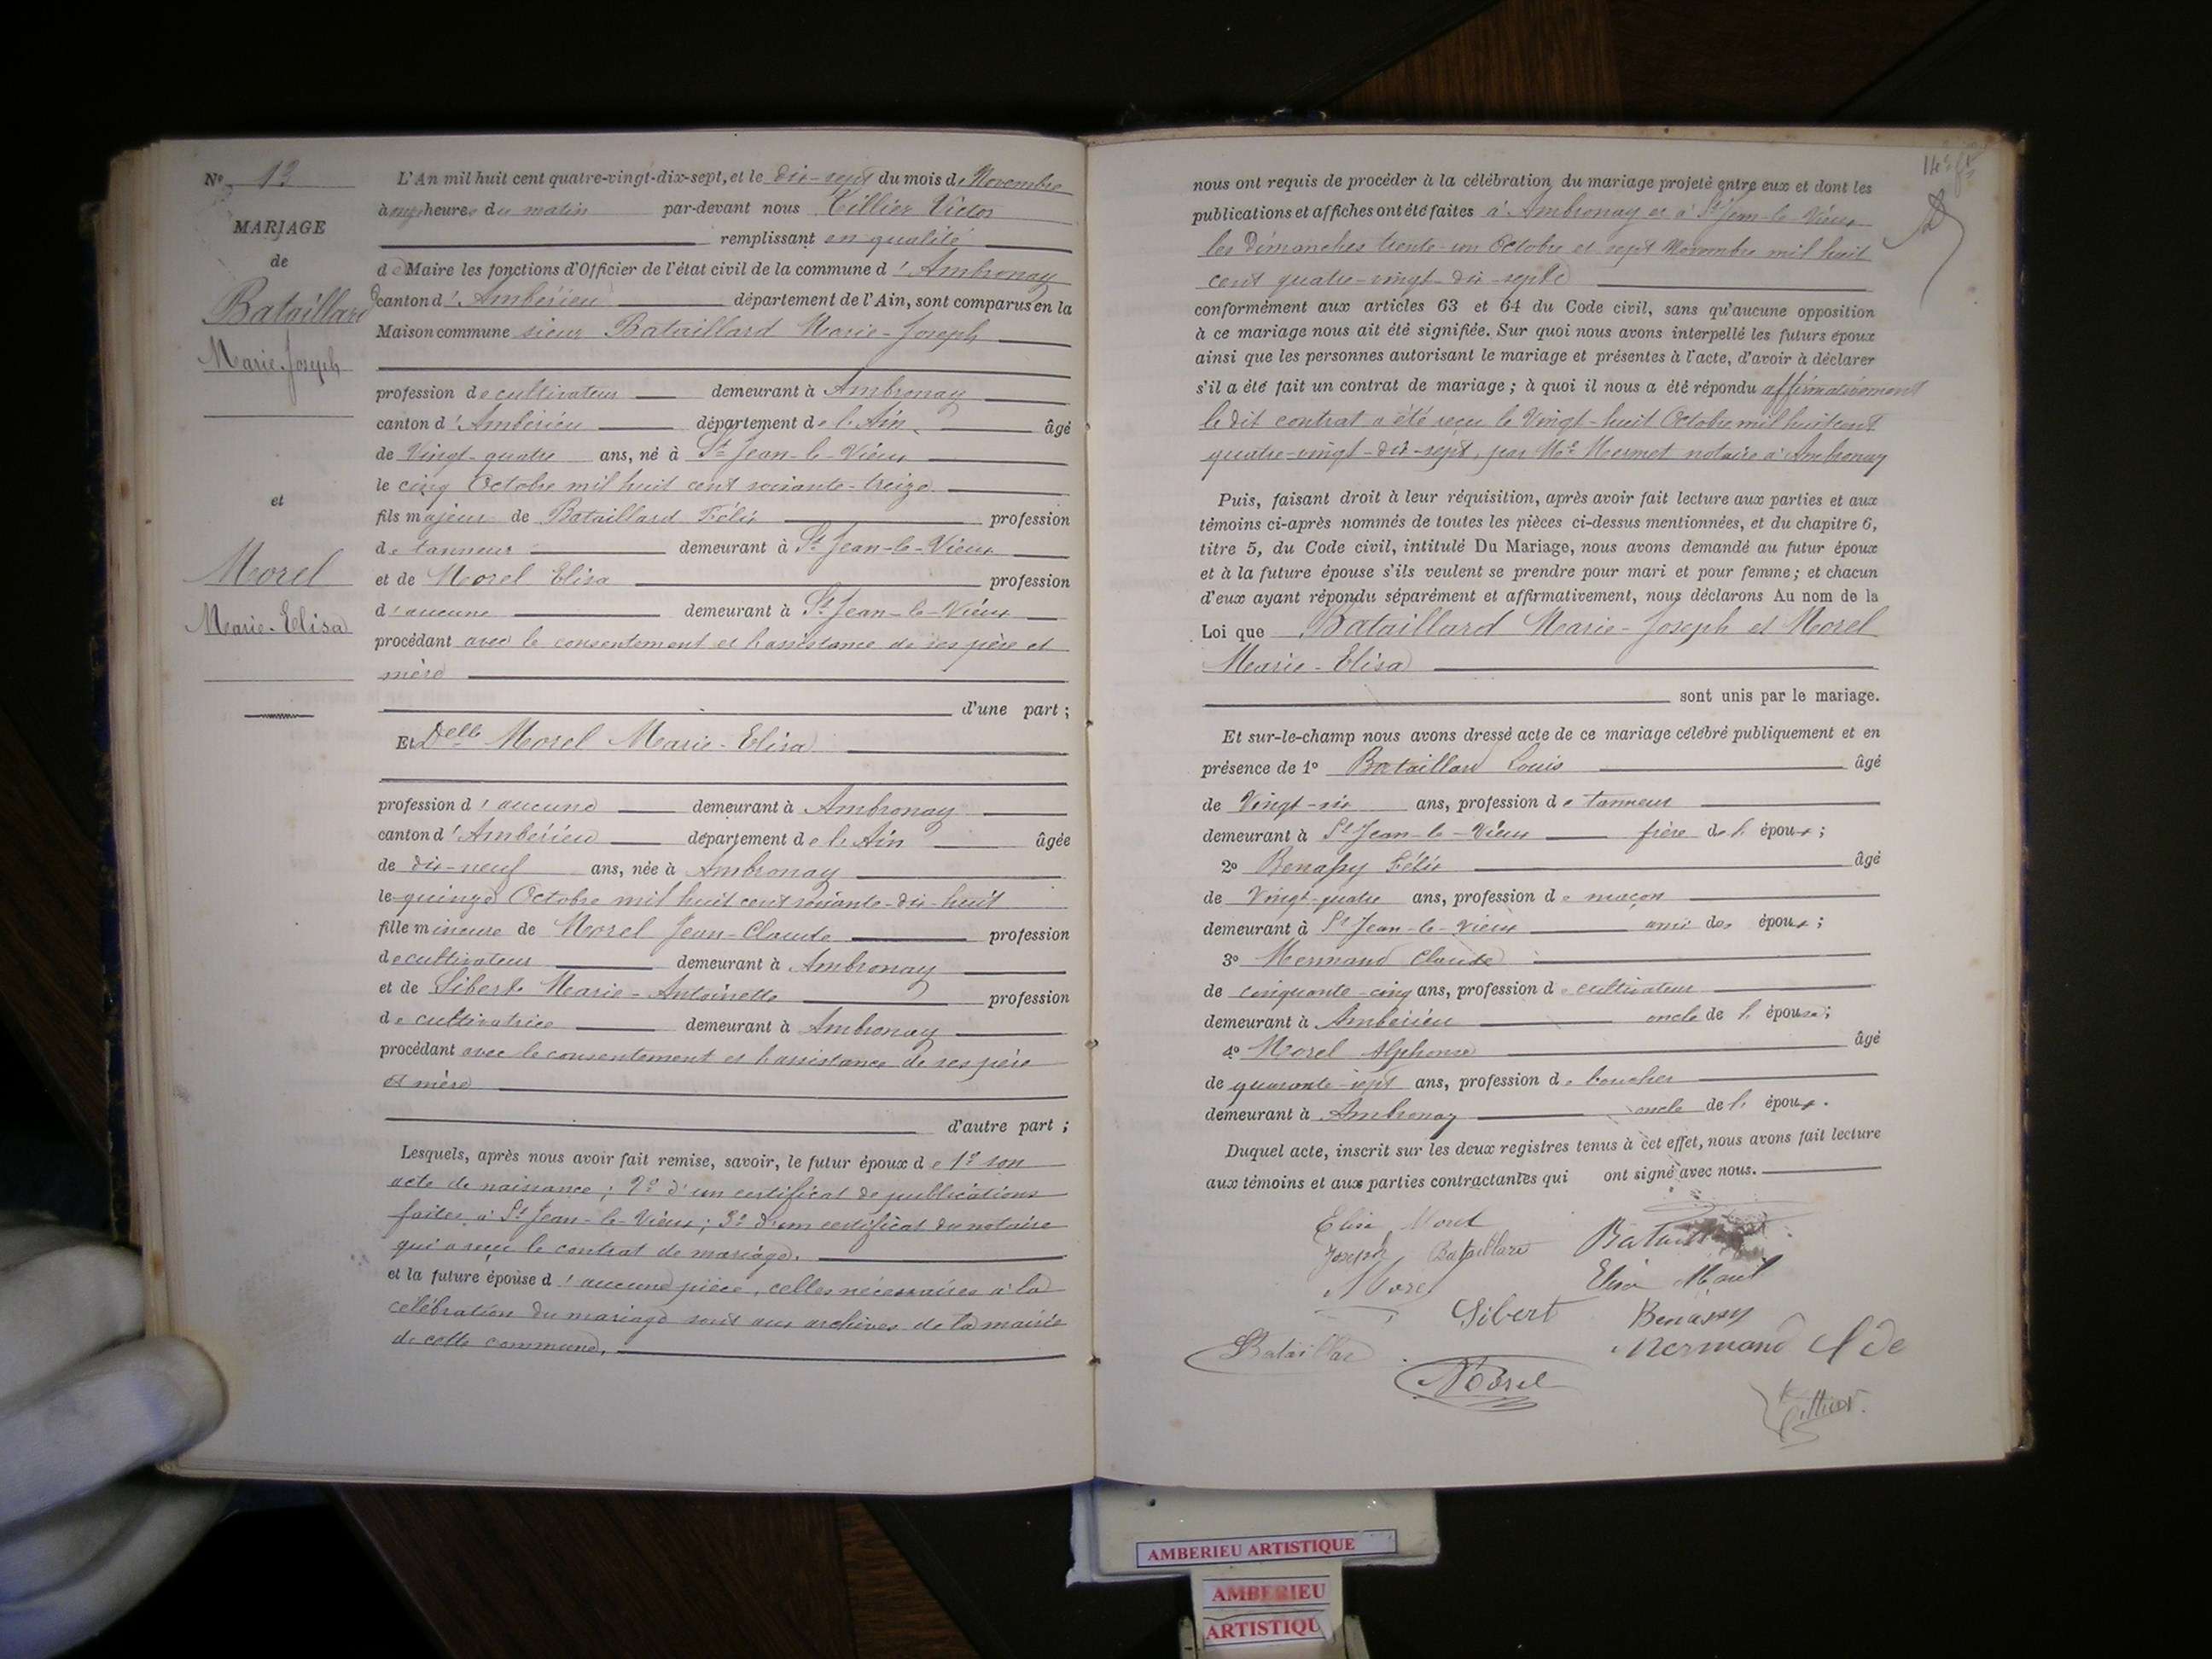 N° 13
MARIAGE
de
Bataillard
Marie-Joseph
et
Morel
Marie-Elisa
L'An mil huit cent quatre-vingt-dix-sept, et le dix-sept du mois de Novembre
à onze heures du matin par-devant nous Tillier Victor
remplissant en qualité
de Maire les fonctions d'Officier de l'état civil de la commune d'Ambronay
canton d'Ambérieu département de l'Ain, sont comparus en la
Maison commune sieur Bataillard Marie-Joseph
profession de cultivateur demeurant à Ambronay
canton d'Ambérieu département de l'Ain âgé
de Vingt-quatre ans, né à St Jean-le-Vieux
le cinq Octobre mil huit cent soixante-treize
fils majeur de Bataillard Félix profession
de tanneur demeurant à St Jean-le-Vieux
et de Morel Elisa profession
d'aucune demeurant à St Jean-le-Vieux
procédant avec le consentement et l'assistance de ses père et
mère
d'une part ;
Et Delle Morel Marie-Elisa
profession d'aucune demeurant à Ambronay
canton d'Ambérieu département de l'Ain âgée
de dix-neuf ans, née à Ambronay
le quinze Octobre mil huit cent soixante-dix-huit
fille mineure de Morel Jean-Claude profession
de cultivateur demeurant à Ambronay
et de Sibert Marie-Antoinette profession
de cultivatrice demeurant à Ambronay
procédant avec le consentement et l'assistance de ses père
et mère
d'autre part ;
Lesquels, après nous avoir fait remise, savoir, le futur époux de 1° son
acte de naissance ; 2° d'un certificat de publications
faites à St Jean-le-Vieux ; 3° d'un certificat du notaire
qui a reçu le contrat de mariage.
et la future épouse d'aucune pièce, celles nécessaires à la
célébration du mariage sont aux archives de la mairie
de cette commune.
nous ont requis de procéder à la célébration du mariage projeté entre eux et dont les
publications et affiches ont été faites à Ambronay et à St Jean-le-Vieux
les Dimanches trente-un Octobre et sept Novembre mil huit
cent quatre-vingt-dix-sept
conformément aux articles 63 et 64 du Code civil, sans qu'aucune opposition
à ce mariage nous ait été signifiée. Sur quoi nous avons interpellé les futurs époux
ainsi que les personnes autorisant le mariage et présentes à l'acte, d'avoir à déclarer
s'il a été fait un contrat de mariage ; à quoi il nous a été répondu affirmativement
le dit contrat a été reçu le Vingt-huit Octobre mil huit cent
quatre-vingt-dix-sept, par Me Mermet notaire à Ambronay
Puis, faisant droit à leur réquisition, après avoir fait lecture aux parties et aux
témoins ci-après nommés de toutes les pièces ci-dessus mentionnées, et du chapitre 6,
titre 5, du Code civil, intitulé Du Mariage, nous avons demandé au futur époux
et à la future épouse s'ils veulent se prendre pour mari et pour femme ; et chacun
d'eux ayant répondu séparément et affirmativement, nous déclarons Au nom de la
Loi que Bataillard Marie-Joseph et Morel
Marie-Elisa
sont unis par le mariage.
Et sur-le-champ nous avons dressé acte de ce mariage célébré publiquement et en
présence de 1° Bataillard Louis âgé
de Vingt-six ans, profession de tanneur
demeurant à St Jean-le-Vieux frère de l'époux ;
2° Benassy Félix âgé
de Vingt-quatre ans, profession de maçon
demeurant à St Jean-le-Vieux ami des époux ;
3° Mermand Claude
de cinquante-cinq ans, profession de cultivateur
demeurant à Ambérieu oncle de l'épouse ;
4° Morel Alphonse âgé
de quarante-sept ans, profession de boucher
demeurant à Ambronay oncle de l'époux.
Duquel acte, inscrit sur les deux registres tenus à cet effet, nous avons fait lecture
aux témoins et aux parties contractantes qui ont signé avec nous.
Elisa Morel
Joseph Bataillard
Morel
Elisa Morel
Sibert
Benassy
Bataillard
Mermand Cde
Morel
Tillier
AMBERIEU ARTISTIQUE
AMBERIEU
ARTISTIQU